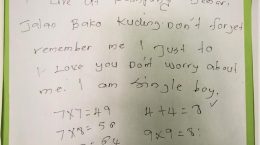 I Live at
Jalan Bako Kudung. Don't forget
remember me I Just to
I Love you Don't worry about
me. I am single boy.
7x7=49 4+4=8 ✓
7x8=56 9x9=8